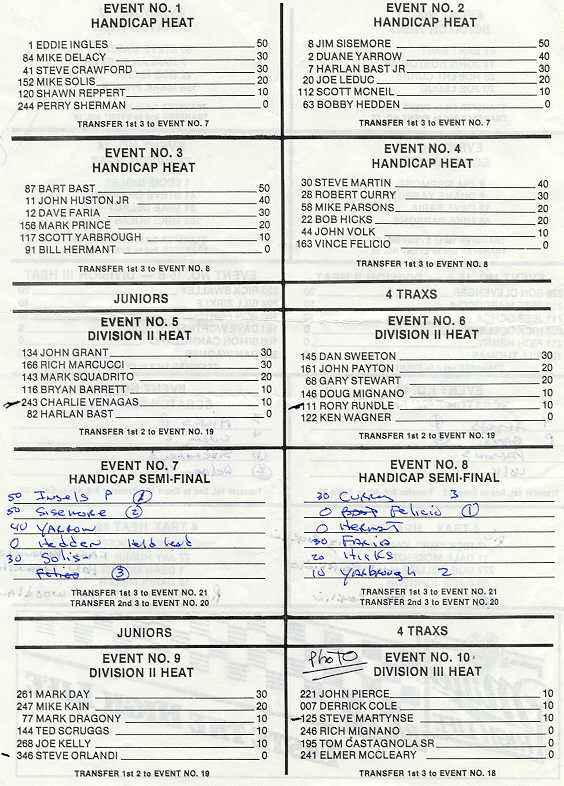 EVENT NO. 1
HANDICAP HEAT
1 EDDIE INGLES 50
84 MIKE DELACY 30
41 STEVE CRAWFORD 30
152 MIKE SOLIS 20
120 SHAWN REPPERT 10
244 PERRY SHERMAN 0
TRANSFER 1st 3 to EVENT NO. 7
EVENT NO. 2
HANDICAP HEAT
8 JIM SISEMORE 50
2 DUANE YARROW 40
7 HARLAN BAST JR 30
20 JOE LEDUC 20
112 SCOTT MCNEIL 10
63 BOBBY HEDDEN 0
TRANSFER 1st 3 to EVENT NO. 7
EVENT NO. 3
HANDICAP HEAT
87 BART BAST 50
11 JOHN HUSTON JR 40
12 DAVE FARIA 30
156 MARK PRINCE 20
117 SCOTT YARBROUGH 10
91 BILL HERMANT 0
TRANSFER 1st 3 to EVENT NO. 8
EVENT NO. 4
HANDICAP HEAT
30 STEVE MARTIN 40
28 ROBERT CURRY 30
58 MIKE PARSONS 20
22 BOB HICKS 20
44 JOHN VOLK 10
163 VINCE FELICIO 0
TRANSFER 1st 3 to EVENT NO. 8
JUNIORS
EVENT NO. 5
DIVISION II HEAT
134 JOHN GRANT 30
166 RICH MARCUCCI 30
143 MARK SQUADRITO 20
116 BRYAN BARRETT 10
243 CHARLIE VENAGAS 10
82 HARLAN BAST 0
TRANSFER 1st 2 to EVENT NO. 19
4 TRAXS
EVENT NO. 6
DIVISION II HEAT
145 DAN SWEETON 30
161 JOHN PAYTON 20
68 GARY STEWART 20
146 DOUG MIGNANO 10
111 RORY RUNDLE 10
122 KEN WAGNER 0
TRANSFER 1st 2 to EVENT NO. 19
EVENT NO. 7
HANDICAP SEMI-FINAL
50 Ingels P
50 Sisemore 2
40 Yarrow
0 Hedden Held head
30 Solis
3
TRANSFER 1st 3 to EVENT NO. 21
TRANSFER 2nd 3 to EVENT NO. 20
EVENT NO. 8
HANDICAP SEMI-FINAL
30 Curry 3
0 Felicio 1
0 Hermant
30 Faria
20 Hicks
10 Yarbrough 2
TRANSFER 1st 3 to EVENT NO. 21
TRANSFER 2nd 3 to EVENT NO. 20
JUNIORS
EVENT NO. 9
DIVISION II HEAT
261 MARK DAY 30
247 MIKE KAIN 20
77 MARK DRAGONY 10
144 TED SCRUGGS 10
268 JOE KELLY 10
346 STEVE ORLANDI 0
TRANSFER 1st 2 to EVENT NO. 19
4 TRAXS
Photo
EVENT NO. 10
DIVISION III HEAT
221 JOHN PIERCE 10
007 DERRICK COLE 10
125 STEVE MARTYNSE 10
246 RICH MIGNANO 0
195 TOM CASTAGNOLA SR 0
241 ELMER MCCLEARY 0
TRANSFER 1st 3 to EVENT NO. 18